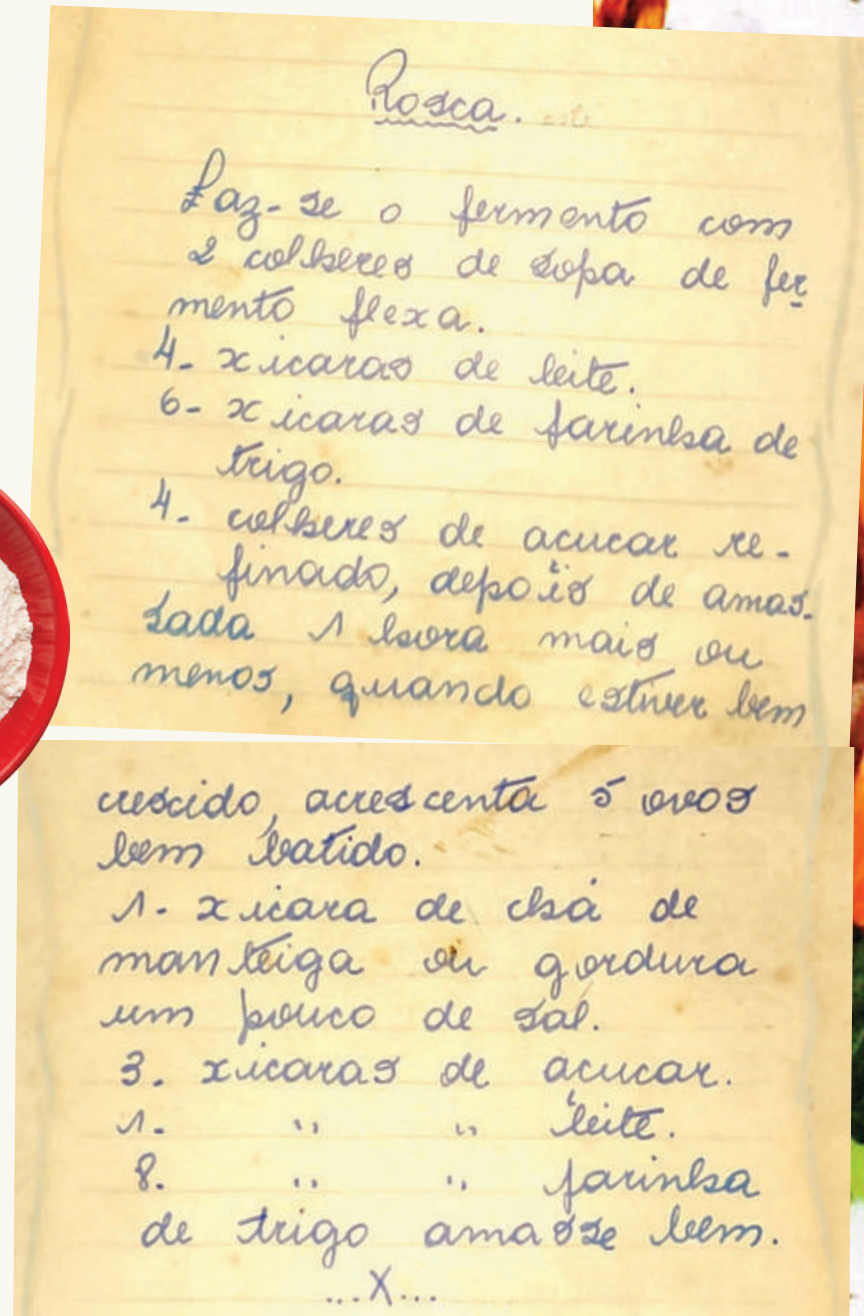 Rosca.
Faz-se o fermento com
2 colheres de sopa de fer
mento flexa.
4- xicaras de leite.
6- xicaras de farinha de
trigo.
4- colheres de acucar re-
finado, depois de amas-
sada 1 hora mais ou
menos, quando estiver bem
crescido, acrescenta 5 ovos
bem batido.
1- xicara de chá de
manteiga ou gordura
um pouco de sal.
3. xicaras de açucar.
1- " " leite.
8. " " farinha
de trigo amasse bem.
...X...